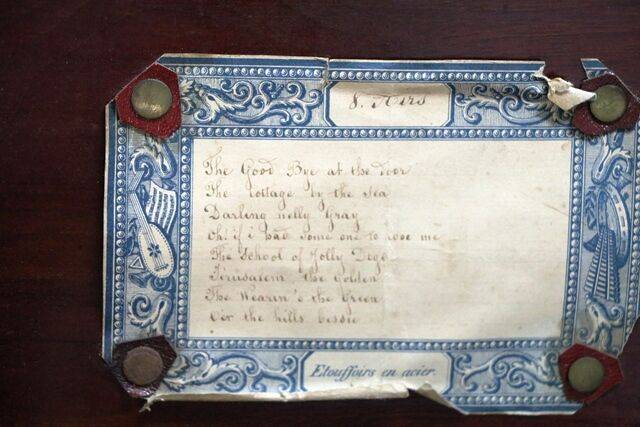 8. Airs
The Good Bye at the door
The Cottage by the Sea
Darling nelly Gray
Oh! if i had some one to love me
The School of Jolly Dogs
Jerusalem the Golden
The Wearin'o the Green
O'er the hills bessie
Etouffoirs en acier.